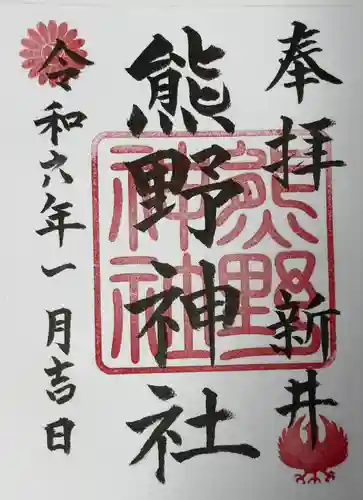 奉拝 新井
熊野神社
令和六年一月吉日
熊野
神社